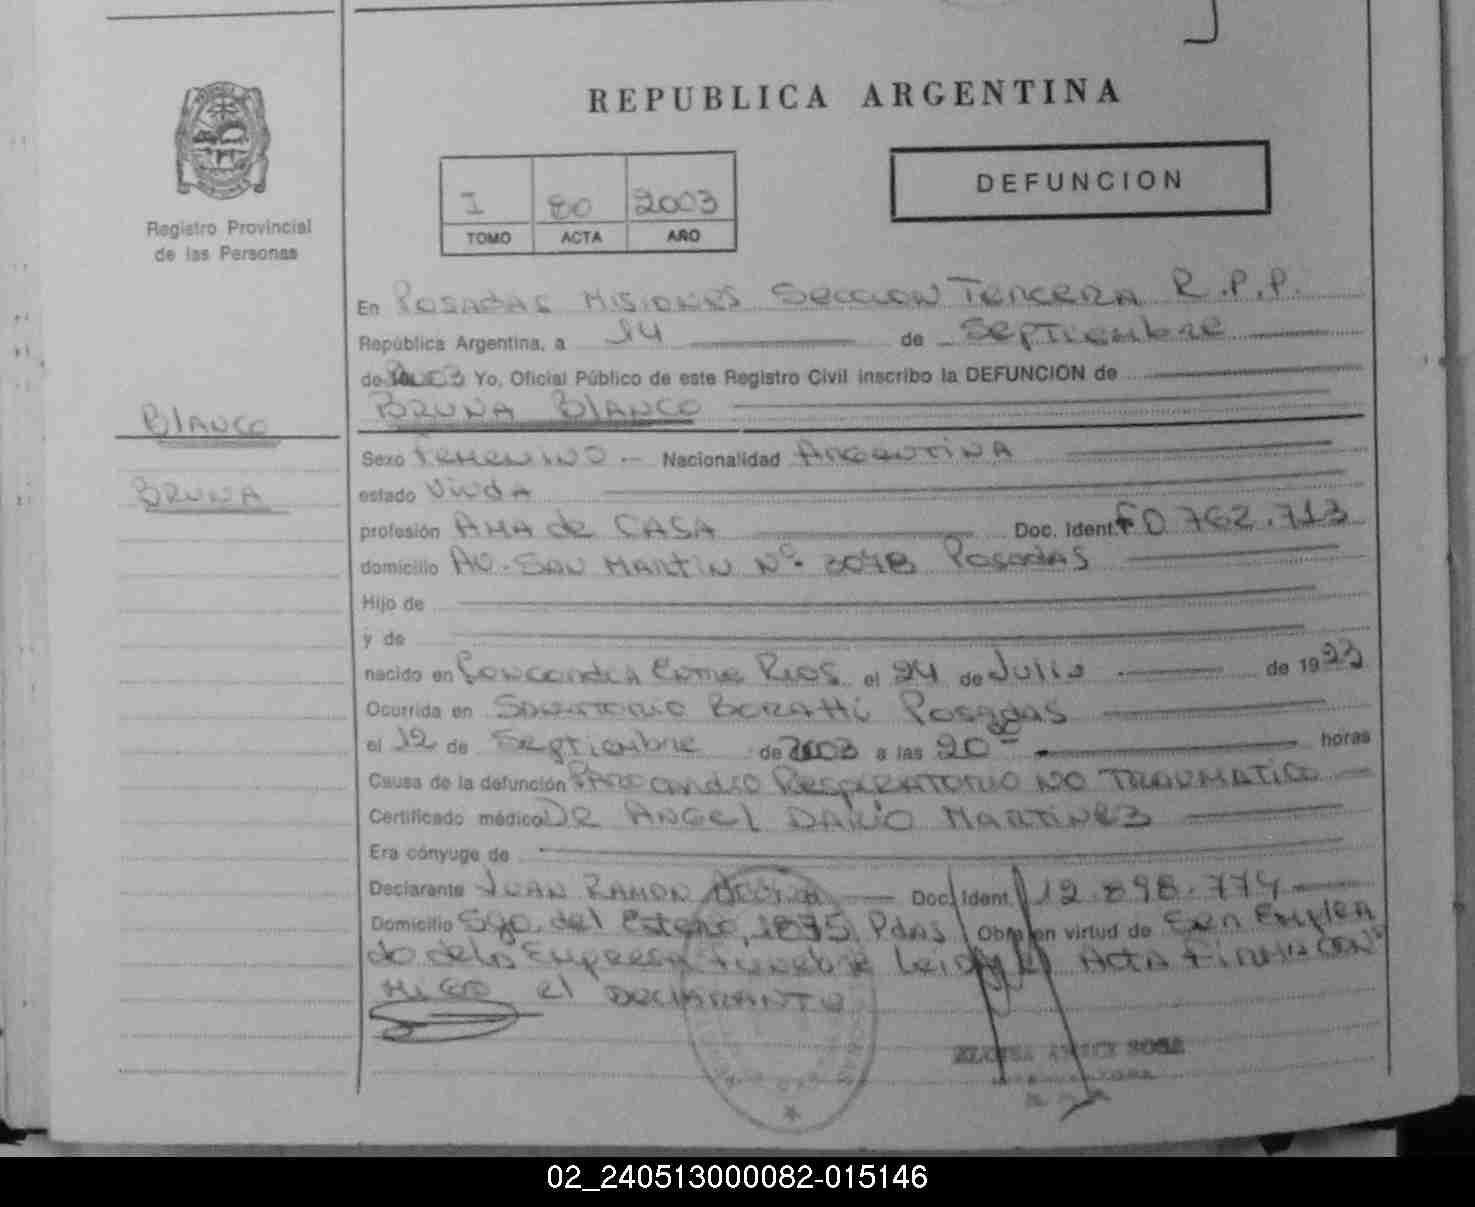 REPUBLICA ARGENTINA
DEFUNCION
Registro Provincial
de las Personas
I 80 2003
TOMO ACTA AÑO
En Posadas Misiones Seccion Tercera R.P.P.
República Argentina, a 14 de Septiembre
de 2003 Yo, Oficial Público de este Registro Civil inscribo la DEFUNCION de
Bruna Blanco
Blanco
Bruna
Sexo Femenino Nacionalidad Argentina
estado Viuda
profesión Ama de Casa Doc. Ident. F 0.762.713
domicilio Av. San Martin Nº 3048 Posadas
Hijo de
y de
nacido en Concordia Entre Rios el 24 de Julio de 1923
Ocurrida en Sanatorio Boratti Posadas
el 12 de Septiembre de 2003 a las 20 horas
Causa de la defunción Paro Cardio Respiratorio no Traumatico
Certificado médico Dr Angel Dario Martinez
Era cónyuge de
Declarante Juan Ramon Doc. Ident. 12.898.774
Domicilio Sgo. del Estero 1875 Pdas Obra en virtud de Ser Emplea
do de la Empresa Funebre Leida el Acta Firma con
migo el Declarante
SOSA
02_240513000082-015146